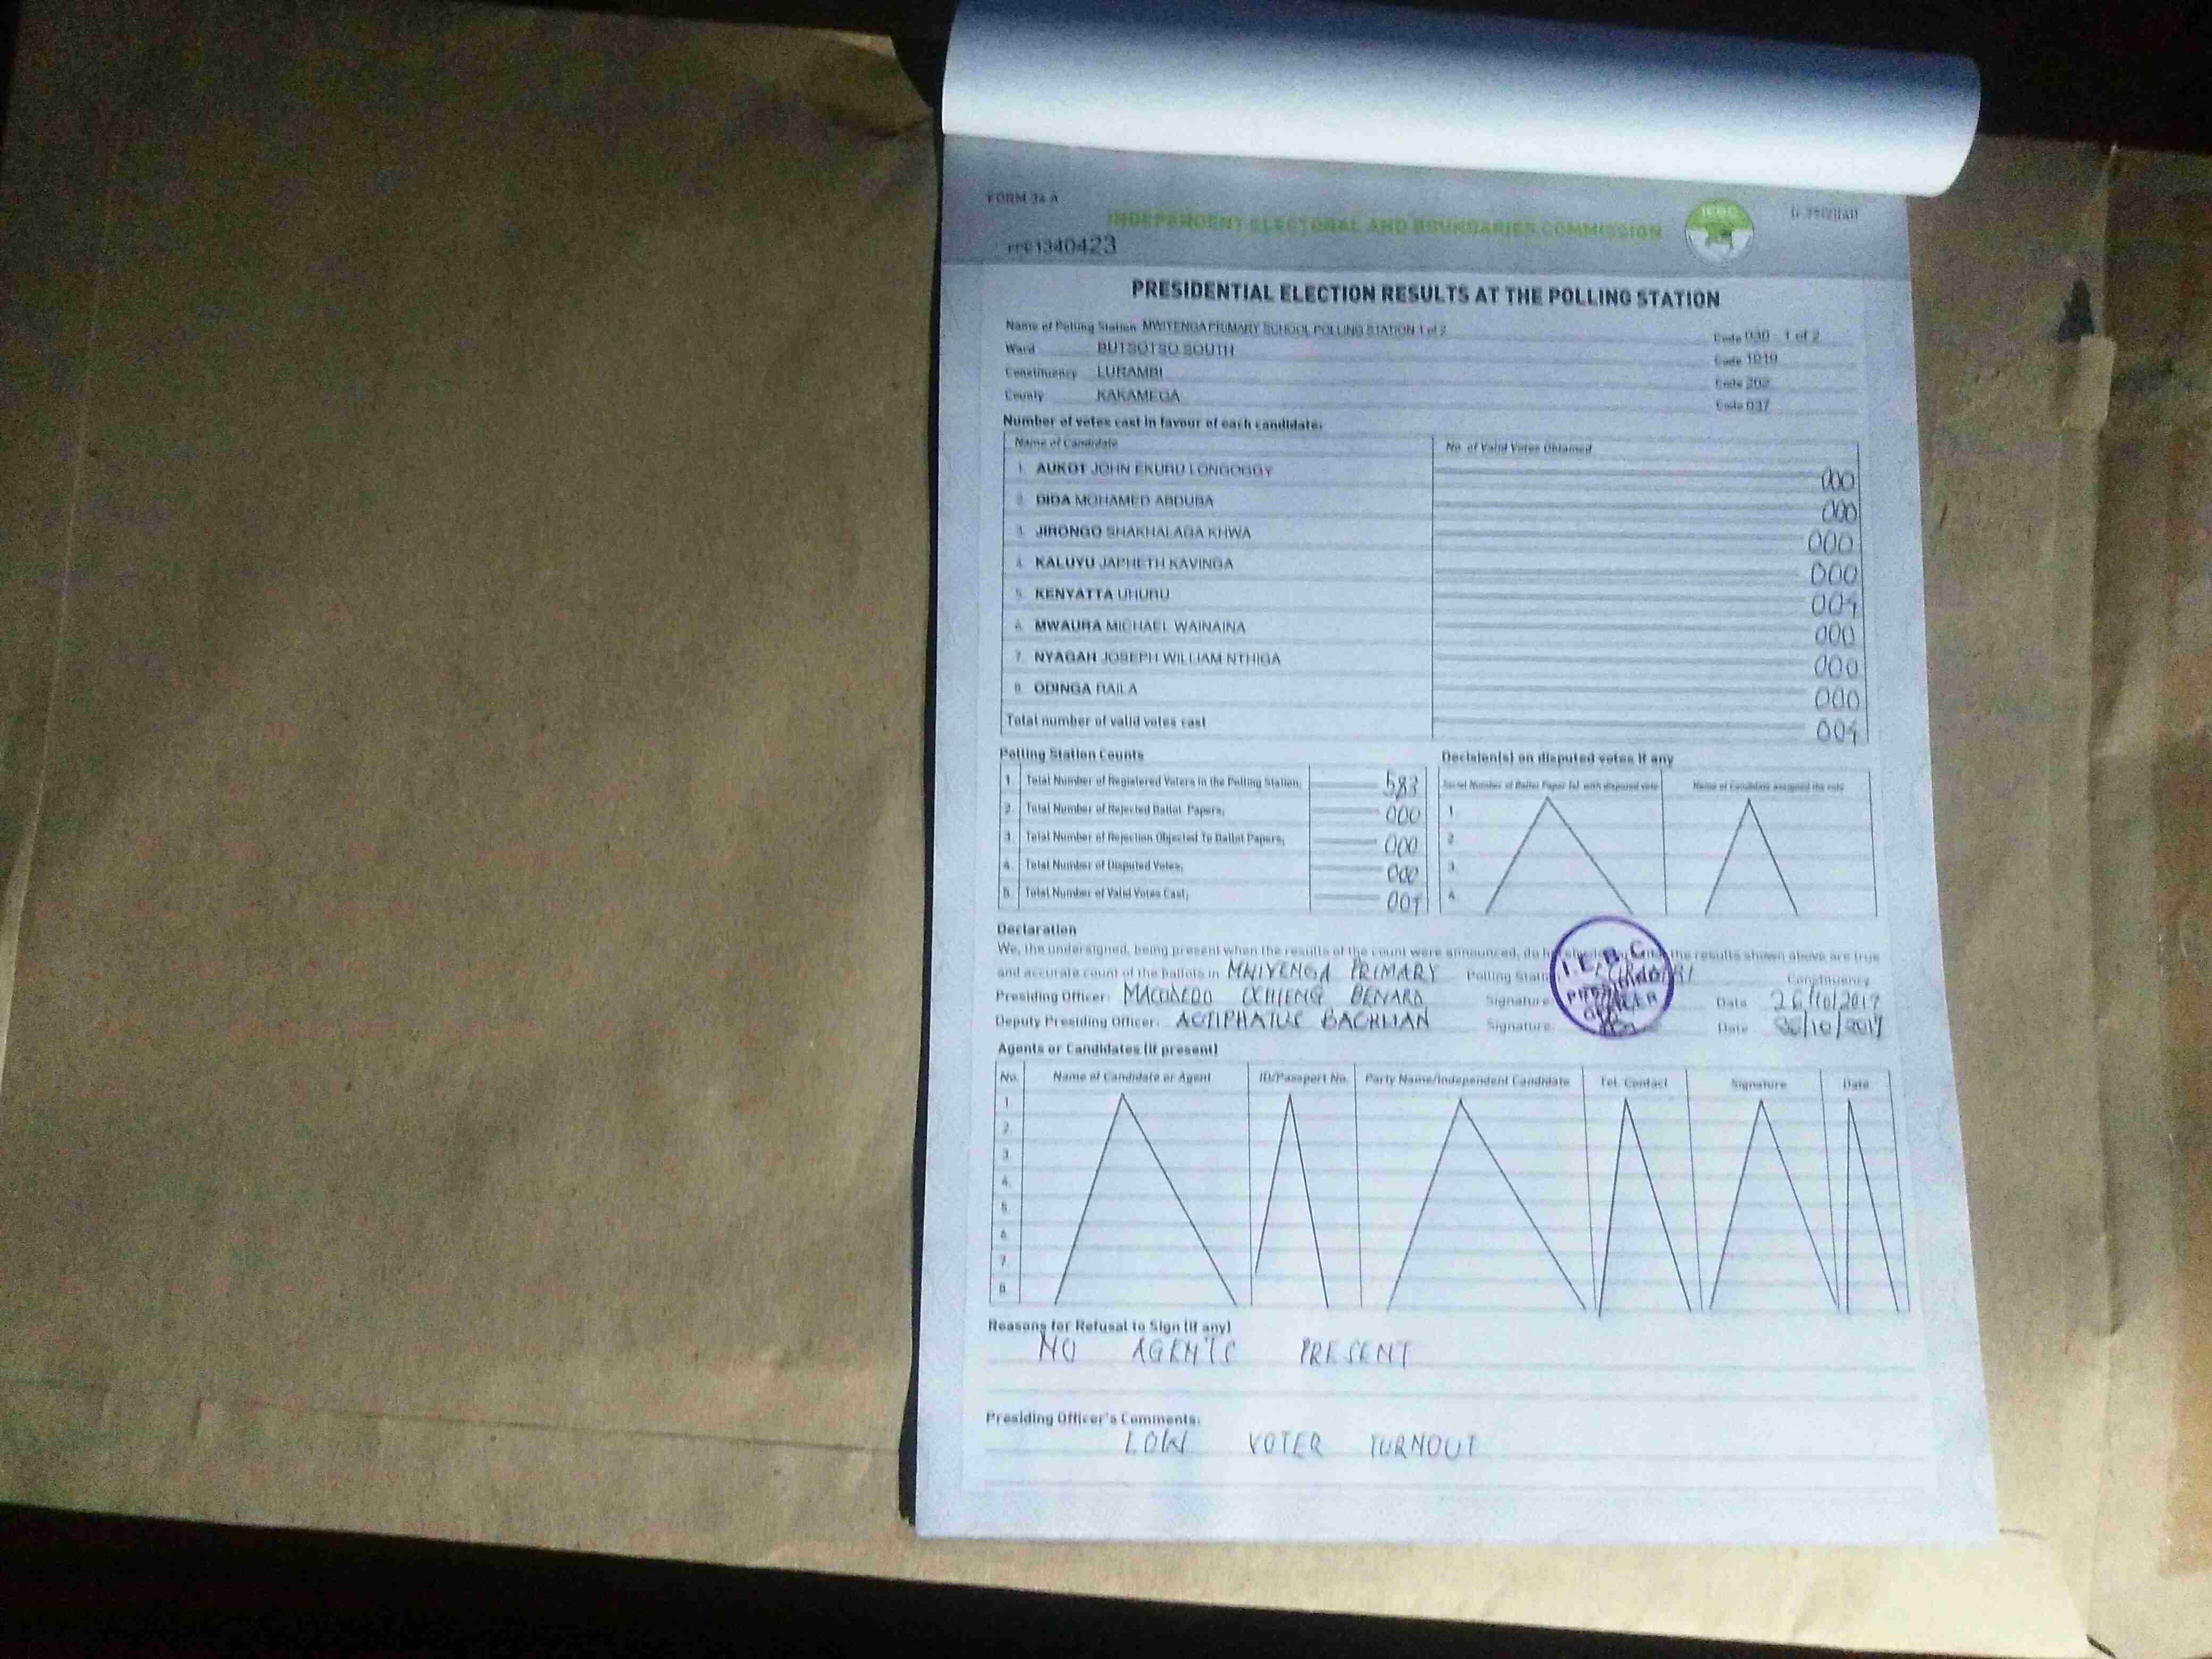 FORM 34 A
INDEPENDENT ELECTORAL AND BOUNDARIES COMMISSION
IEBC
1340423
PRESIDENTIAL ELECTION RESULTS AT THE POLLING STATION
Name of Polling Station MWIYENGA PRIMARY SCHOOL POLLING STATION 1 of 2 Code 030 - 1 of 2
Ward BUTSOTSO SOUTH Code 1010
Constituency LURAMBI Code 202
County KAKAMEGA Code 037
Number of votes cast in favour of each candidate:
Name of Candidate No. of Valid Votes Obtained
1. AUKOT JOHN EKURU LONGOGGY 000
2. DIDA MOHAMED ABDUBA 000
3. JIRONGO SHAKHALAGA KHWA 000
4. KALUYU JAPHETH KAVINGA 000
5. KENYATTA UHURU
6. MWAURA MICHAEL WAINAINA 000
7. NYAGAH JOSEPH WILLIAM NTHIGA 000
8. ODINGA RAILA 000
Total number of valid votes cast
Polling Station Counts
1. Total Number of Registered Voters in the Polling Station; 583
2. Total Number of Rejected Ballot Papers; 000
3. Total Number of Rejection Objected To Ballot Papers; 000
4. Total Number of Disputed Votes; 000
5. Total Number of Valid Votes Cast;
Decision(s) on disputed votes if any
Serial Number of Ballot Paper (s) with disputed vote Name of Candidate assigned the vote
1.
2.
3.
4.
Declaration
We, the undersigned, being present when the results of the count were announced, do the results shown above are true
and accurate count of the ballots in MWIYENGA PRIMARY Polling Constituency
I.E.B.C
PRESIDING
OFFICER
Presiding Officer: BENARD Signature Date 26/10/2017
Deputy Presiding Officer: Signature Date 26/10/2017
Agents or Candidates (if present)
No. Name of Candidate or Agent ID/Passport No. Party Name/Independent Candidate Tel. Contact Signature Date
1
2.
3.
4.
5.
6.
7.
8.
Reasons for Refusal to Sign (if any)
NO AGENTS PRESENT
Presiding Officer's Comments:
LOW VOTER TURNOUT